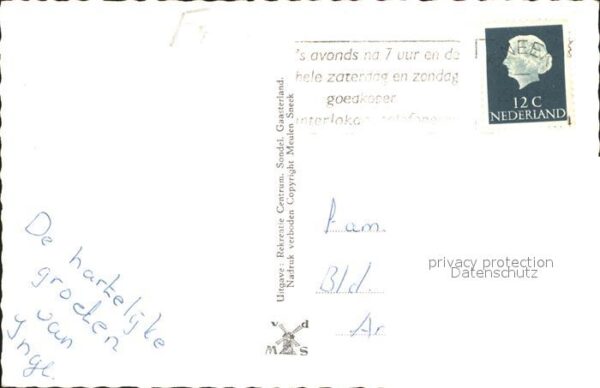 's avonds na 7 uur en de
hele zaterdag en zondag
goedkoper
interlokaal telefoneren
SNEEK
12 C
NEDERLAND
Uitgave: Rekreatie Centrum, Sondel, Gaasterland.
Nadruk verboden Copyright Meulen Sneek
De hartelijke
groeten
van
Ynge.
Fam.
Bld.
Ar
privacy protection
Datenschutz
v d
M S